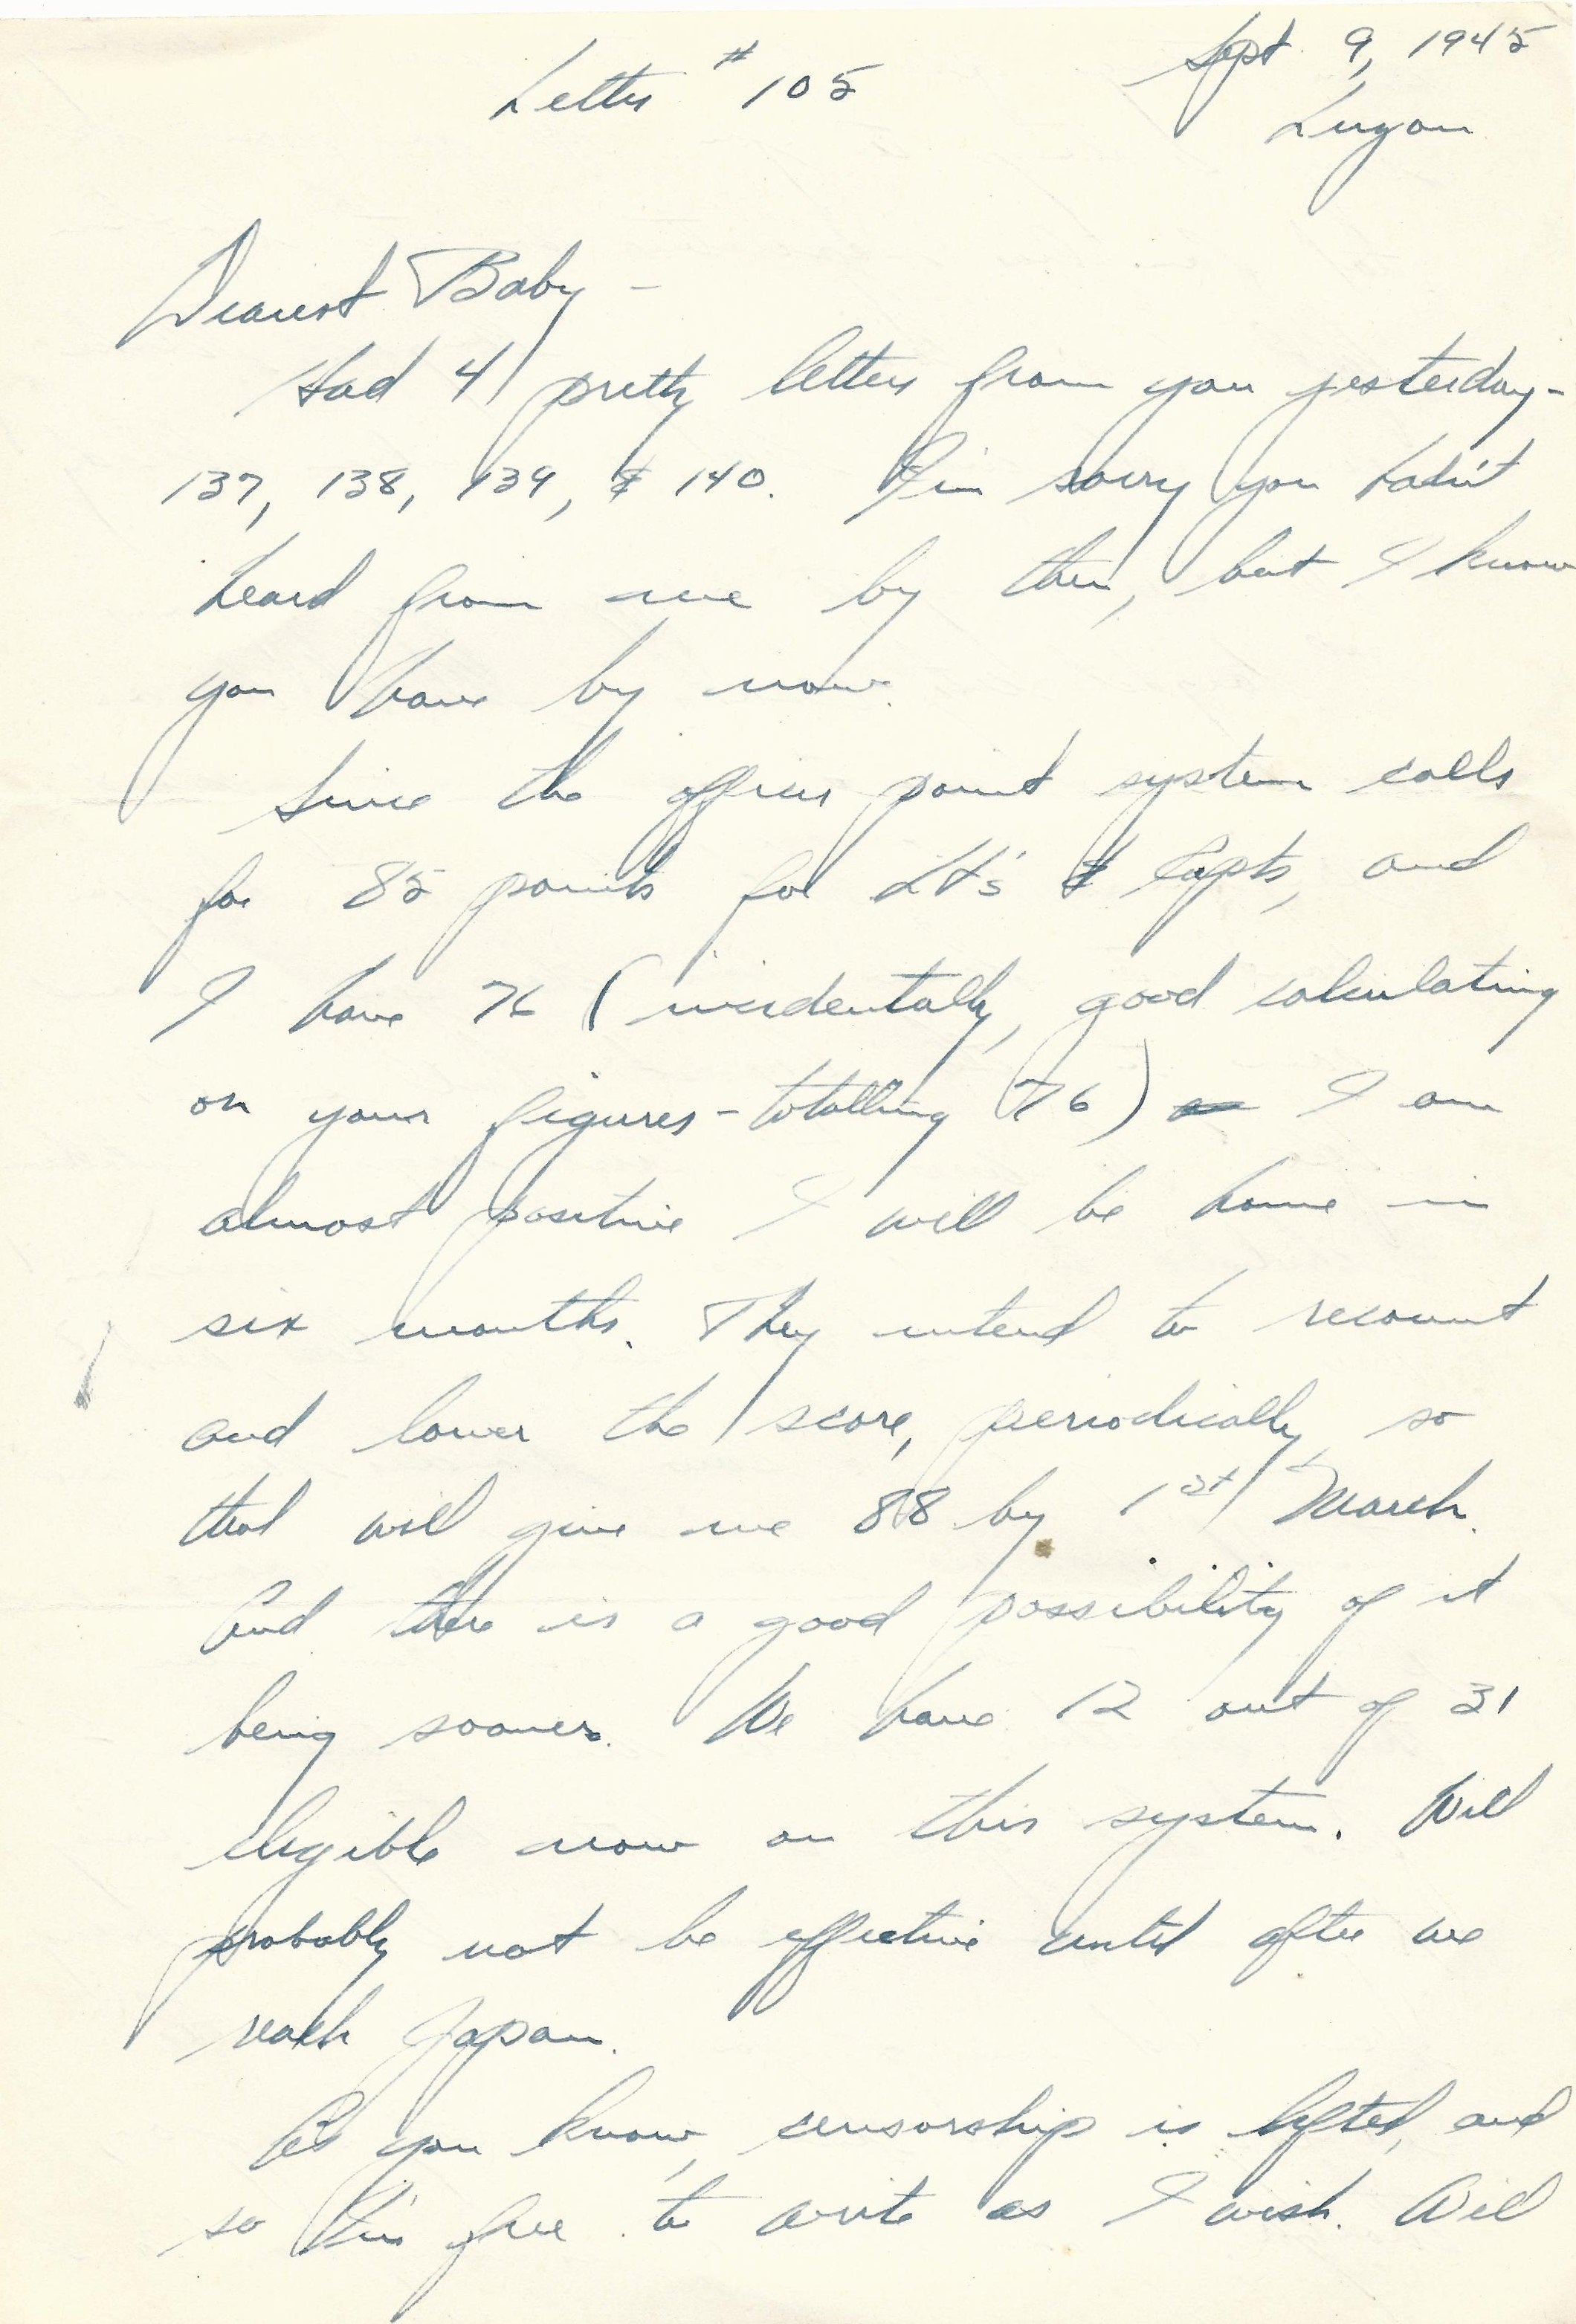 Letter # 105
Sept. 9, 1945
Luzon
Dearest Baby -
Had 4 pretty letters from you yesterday -
137, 138, 139, & 140. I'm sorry you hadn't
heard from me by then, but I know
you have by now.
Since the officer point system calls
for 85 points for Lt's & Capts, and
I have 76 (incidentally, good calculating
on your figures - totalling 76) I am
almost positive I will be home in
six months. They intend to recount
and lower the score, periodically, so
that will give me 88 by 1st March.
And there is a good possibility of it
being sooner. We have 12 out of 31
eligible now on this system. Will
probably not be effective until after we
reach Japan.
As you know, censorship is lifted, and
so I'm free to write as I wish. Will